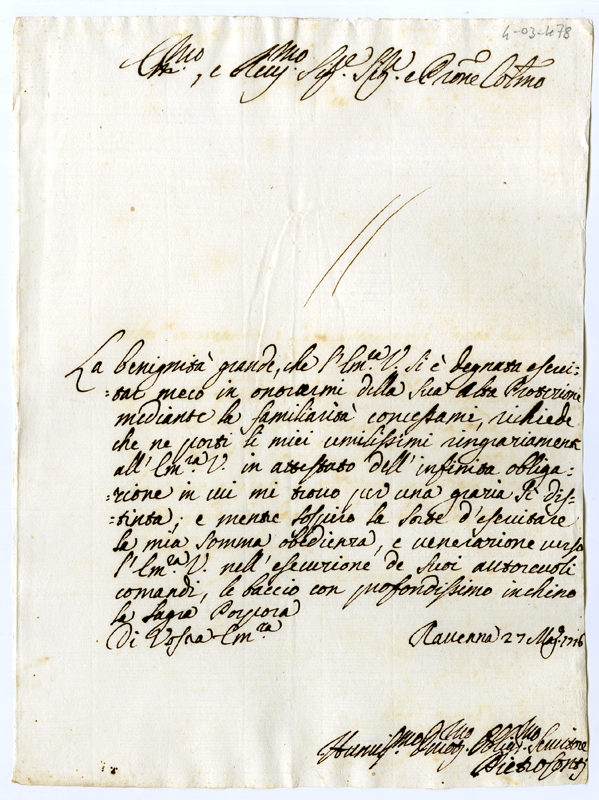 4-03-478
Em.mo, e Reu.mo Sig.e Sig.e e P'rone Col.mo
La benignità grande, che l'Em.za V. si è degnata eserci-
:tar meco in onorarmi della Sua alta Protezione
mediante la familiarità concessami, richiede
che ne porti li miei umilissimi ringraziamenti
all' Em.za V. in attestato dell' infinita obliga-:
:zione in cui mi trovo per una grazia sì dis-:
:tinta; e mentre sospiro la sorte d'esercitare
la mia somma obedienza, e venerazione verso
l'Em.za V. nell' esecuzione de suoi autorevoli
comandi, le baccio con profondissimo inchino
la Sagra Porpora
Di Vosra Em.za Ravenna 27 Mag. 1716
Humil.mo Diuot.mo Oblig.mo Seruitore
Pietro Conti